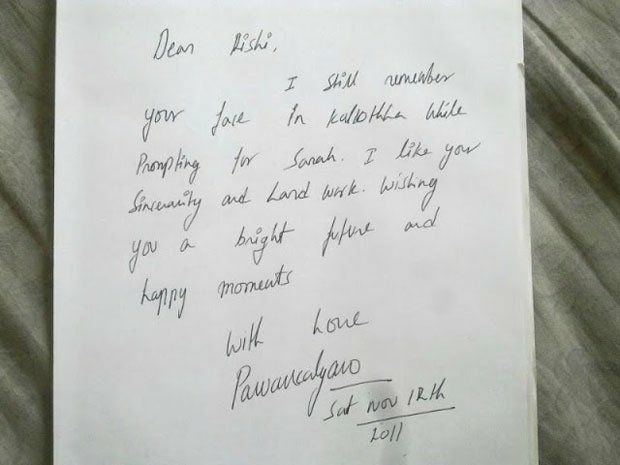 Dear Rishi,
I still remember
your face in kalkothha while
Prompting for Sarah. I like your
Sincearity and hard work. wishing
you a bright future and
happy moments
with Love
Pawankalyan
Sat Nov 12th
2011